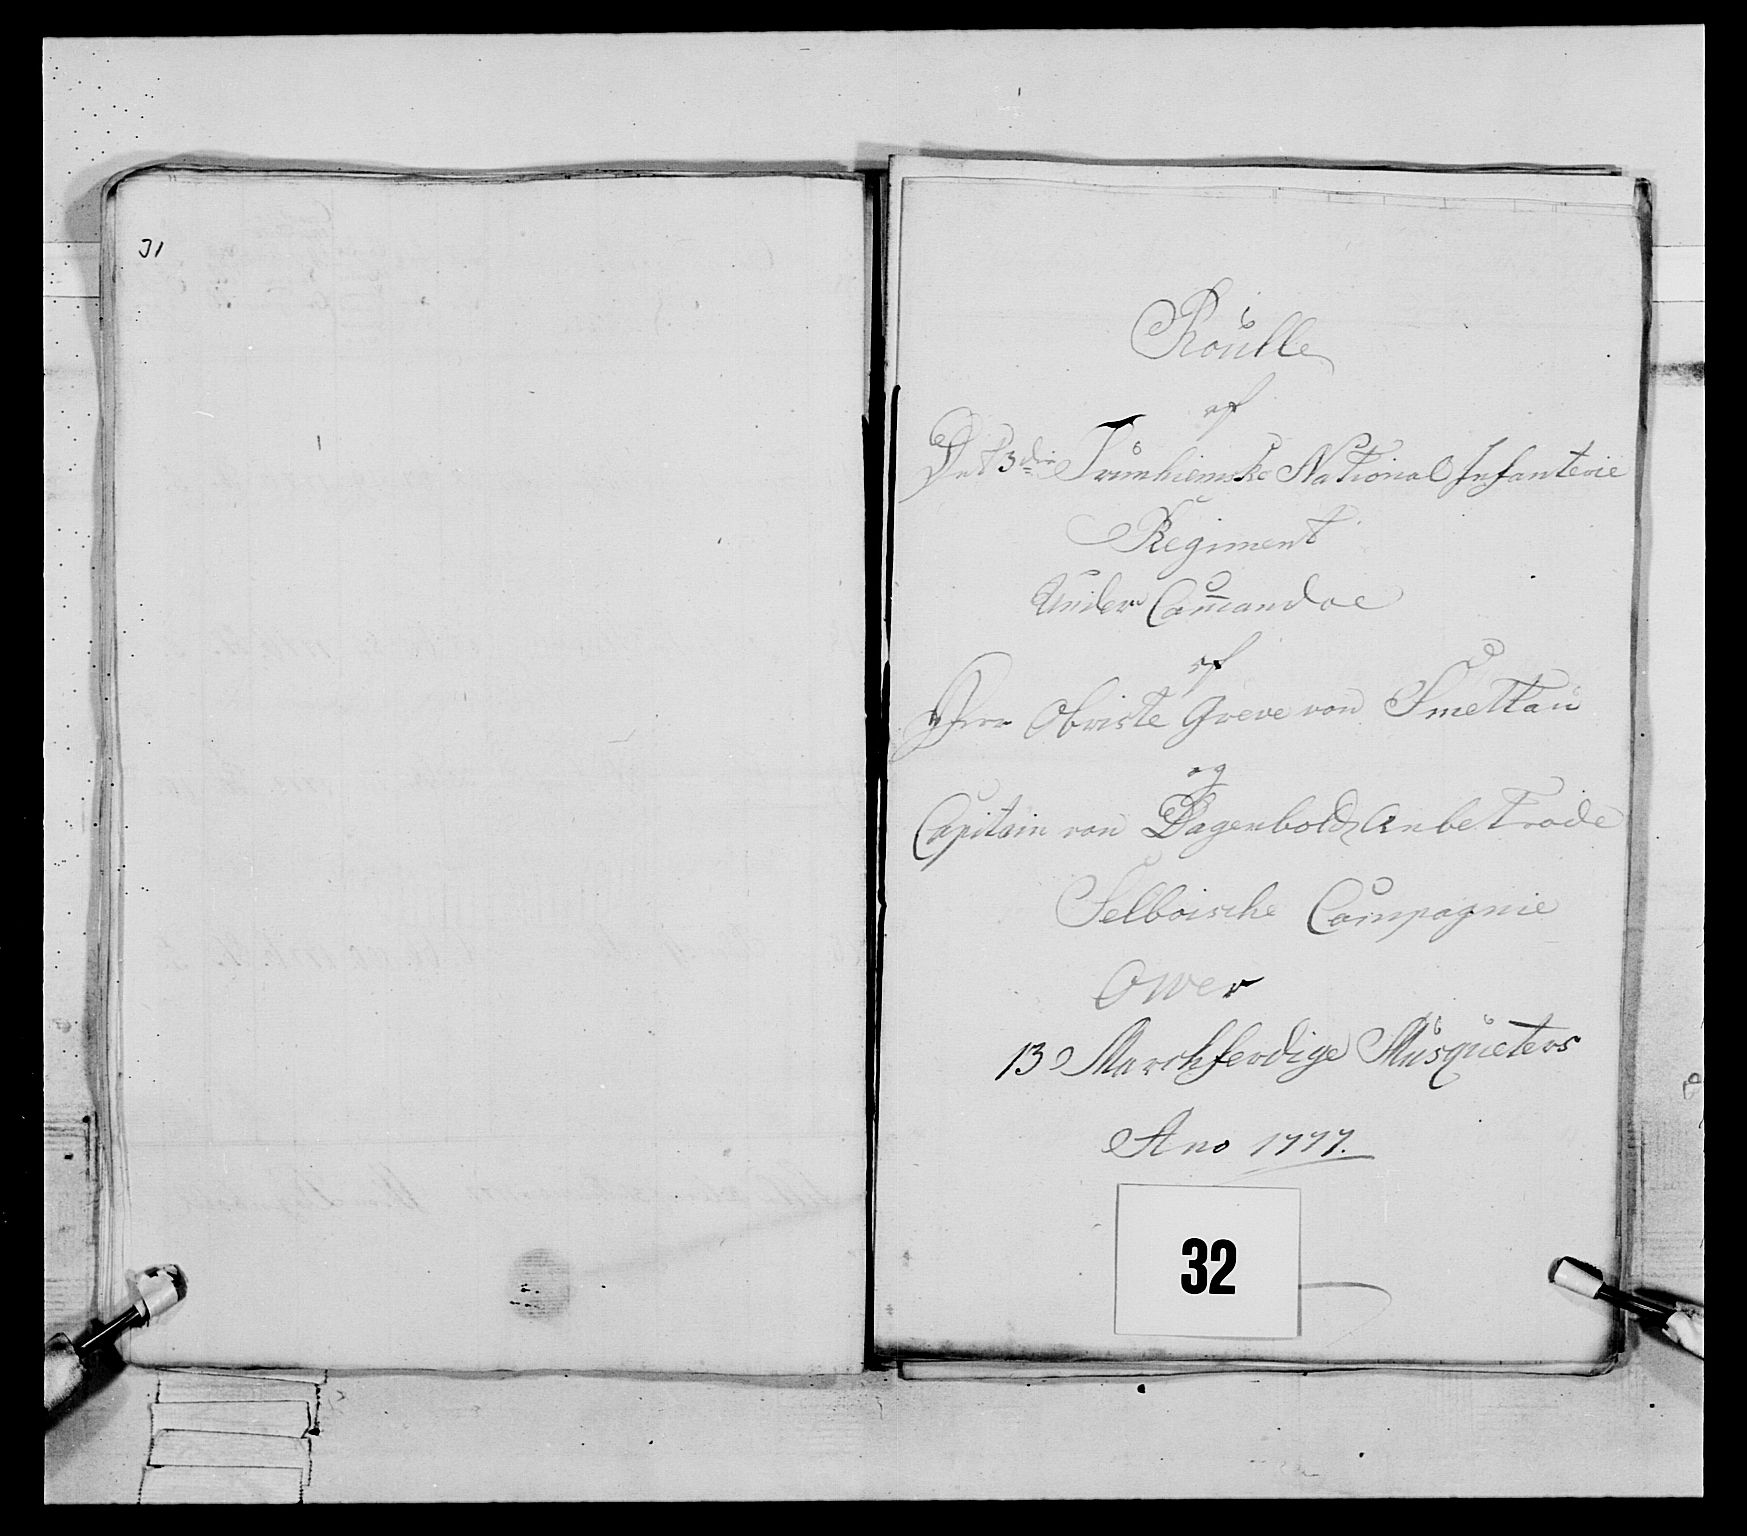 31
Roulle
af
Det 3die Trunhiemske National Infanterie
Regiment
Under Commandoe
af
Herr Obriste Greve von Smettau
og
Capitain von Dagenbolds Anbetrode
Selboische Compagnie
Ower
13 Marchferdige Musqueters
Ano 1777.
32